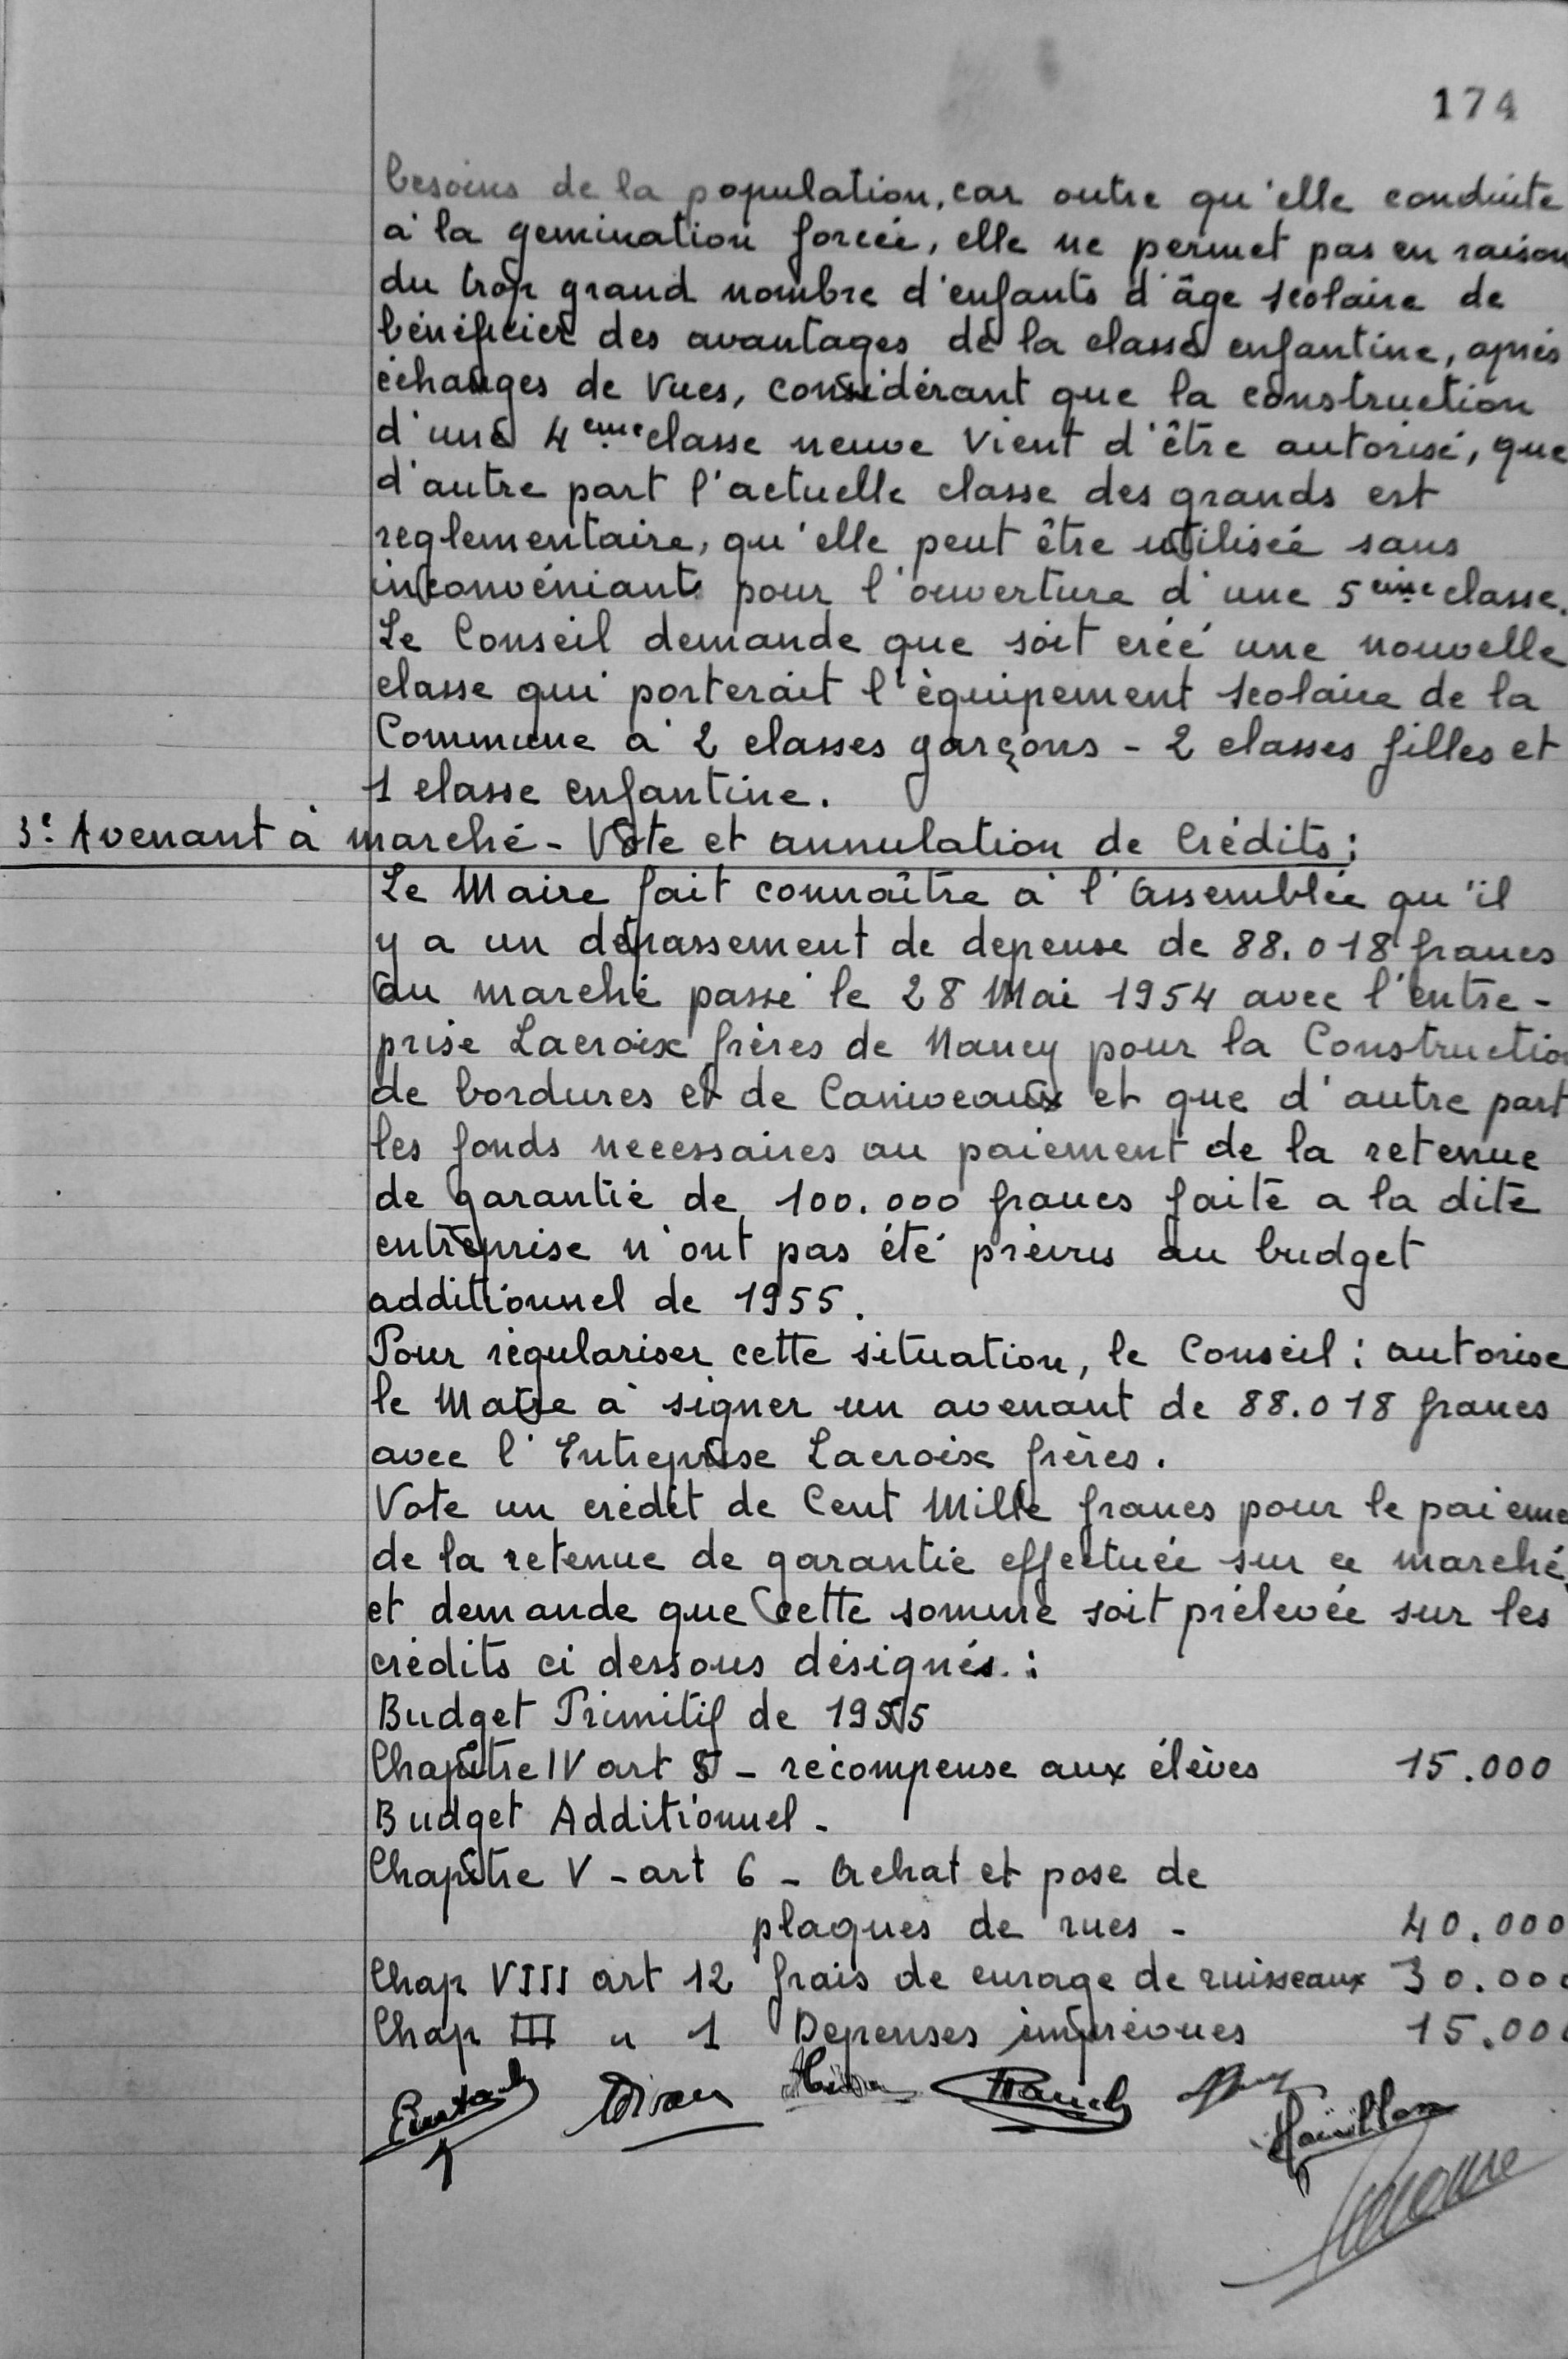 174
besoins de la population, car outre qu'elle conduite
à la gemination forcée, elle ne permet pas en raison
du trop grand nombre d'enfants d'âge scolaire de
bénéficier des avantages de la classe enfantine, après
échanges de vues, considérant que la construction
d'une 4eme classe neuve vient d'être autorisé, que
d'autre part l'actuelle classe des grands est
reglementaire, qu'elle peut être utilisée sans
inconvéniants pour l'ouverture d'une 5eme classe.
Le Conseil demande que soit créé une nouvelle
classe qui porterait l'équipement scolaire de la
Commune à 2 classes garçons - 2 classes filles et
1 classe enfantine.
3e Avenant à marché - Vote et annulation de Crédits :
Le Maire fait connaître à l'Assemblée qu'il
y a un dépassement de depense de 88.018 francs
au marché passé le 28 Mai 1954 avec l'entre-
prise Lacroix frères de Nancy pour la Constructio
de bordures et de Caniveaux et que d'autre part
les fonds necessaires au paiement de la retenue
de garantie de 100.000 francs faite a la dite
entreprise n'ont pas été prévus au budget
additionnel de 1955.
Pour régulariser cette situation, le Conseil : autorise
le Maire à signer un avenant de 88.018 francs
avec l'Entreprise Lacroix frères.
Vote un crédit de Cent Mille francs pour le paieme
de la retenue de garantie effectuée sur ce marché
et demande que cette somme soit prélevée sur les
crédits ci dessous désignés :
Budget Primitif de 1955
Chapître IV art 5 - récompense aux élèves 15.000
Budget Additionnel -
Chapître V - art 6 - Achat et pose de
plaques de rues - 40.000
Chap VIII art 12 frais de curage de ruisseaux 30.000
Chap III " 1 Depenses imprévues 15.000